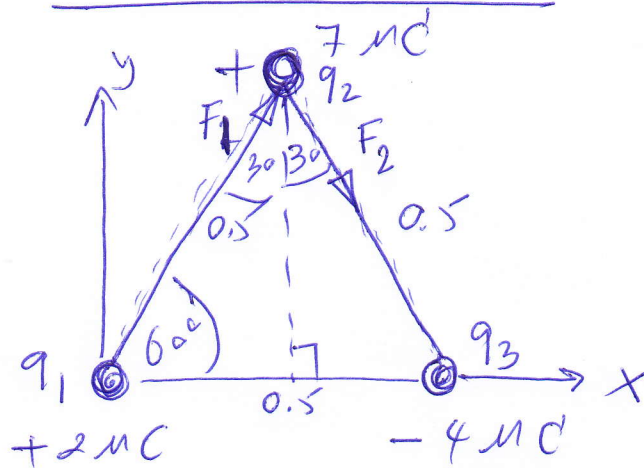 7 μC
y
+
q2
F1
30
30
F2
0.5
0.5
60°
q1
q3
0.5
x
+2 μC
- 4 μC